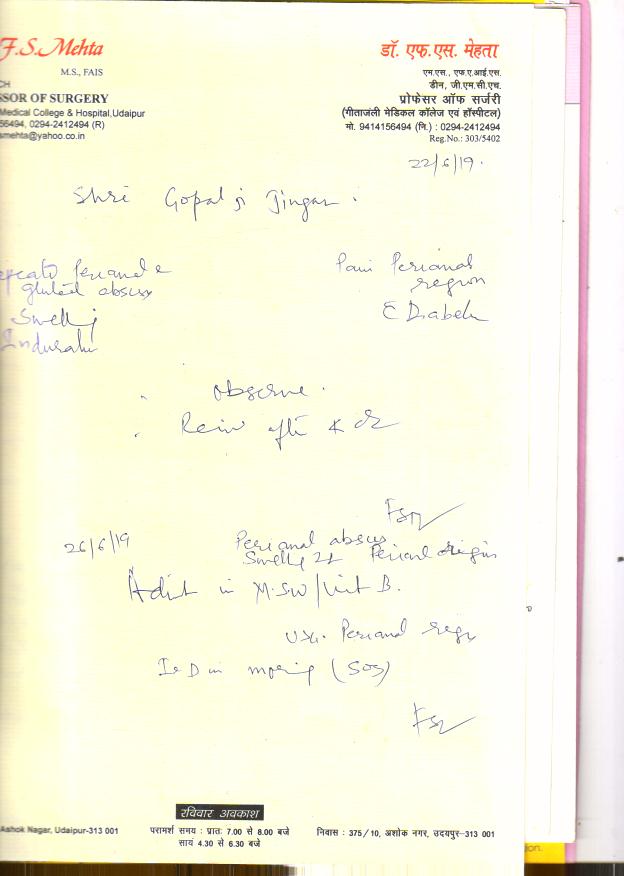 F.S. Mehta
डॉ. एफ.एस. मेहता
M.S., FAIS
एम.एस., एफ.ए.आई.एस.
डीन, जी.एम.सी.एच.
SSOR OF SURGERY
प्रोफेसर ऑफ सर्जरी
Medical College & Hospital,Udaipur
(गीतांजली मेडिकल कॉलेज एवं हॉस्पीटल)
56494, 0294-2412494 (R)
मो. 9414156494 (नि.) : 0294-2412494
smehta@yahoo.co.in
Reg.No.: 303/5402
22/6/19.
Shri Gopal ji Jingar
Perianal
gluteal abscess
Pain Perianal
region
Swelling
Observe.
after
26/6/19
Perianal abscess
Swelling
Admit in M.SW/Unit B.
USG. Perianal region
I & D in morning (SOS)
रविवार अवकाश
Ashok Nagar, Udaipur-313 001
परामर्श समय : प्रातः 7.00 से 8.00 बजे
निवास : 375/10, अशोक नगर, उदयपुर-313 001
सायं 4.30 से 6.30 बजे